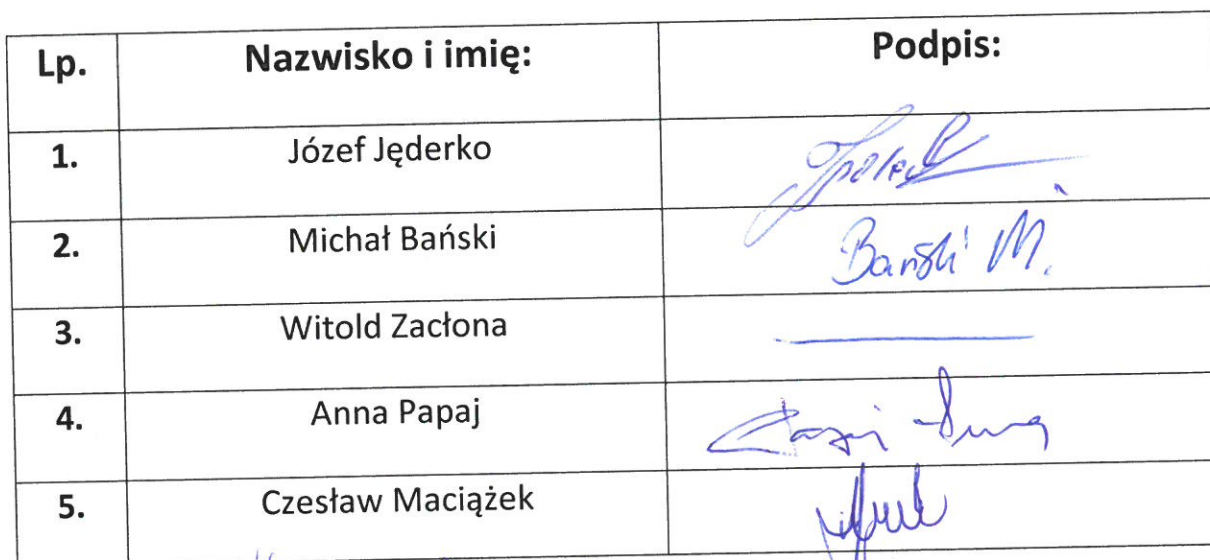 Lp. Nazwisko i imię: Podpis:
1. Józef Jęderko
2. Michał Bański Bański M.
3. Witold Zacłona
4. Anna Papaj
5. Czesław Maciążek